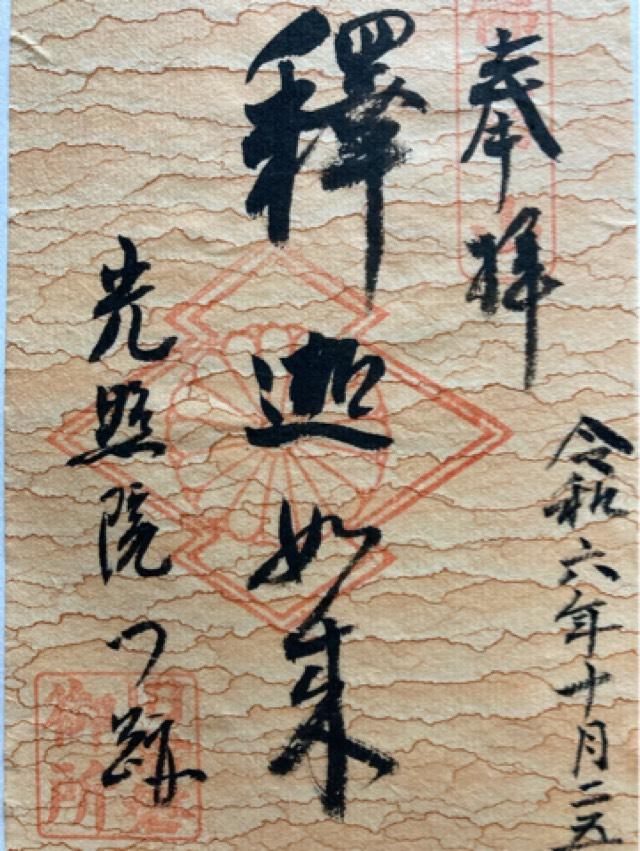 奉拝
令和六年十月二五
釋迦如来
光照院門跡
御所